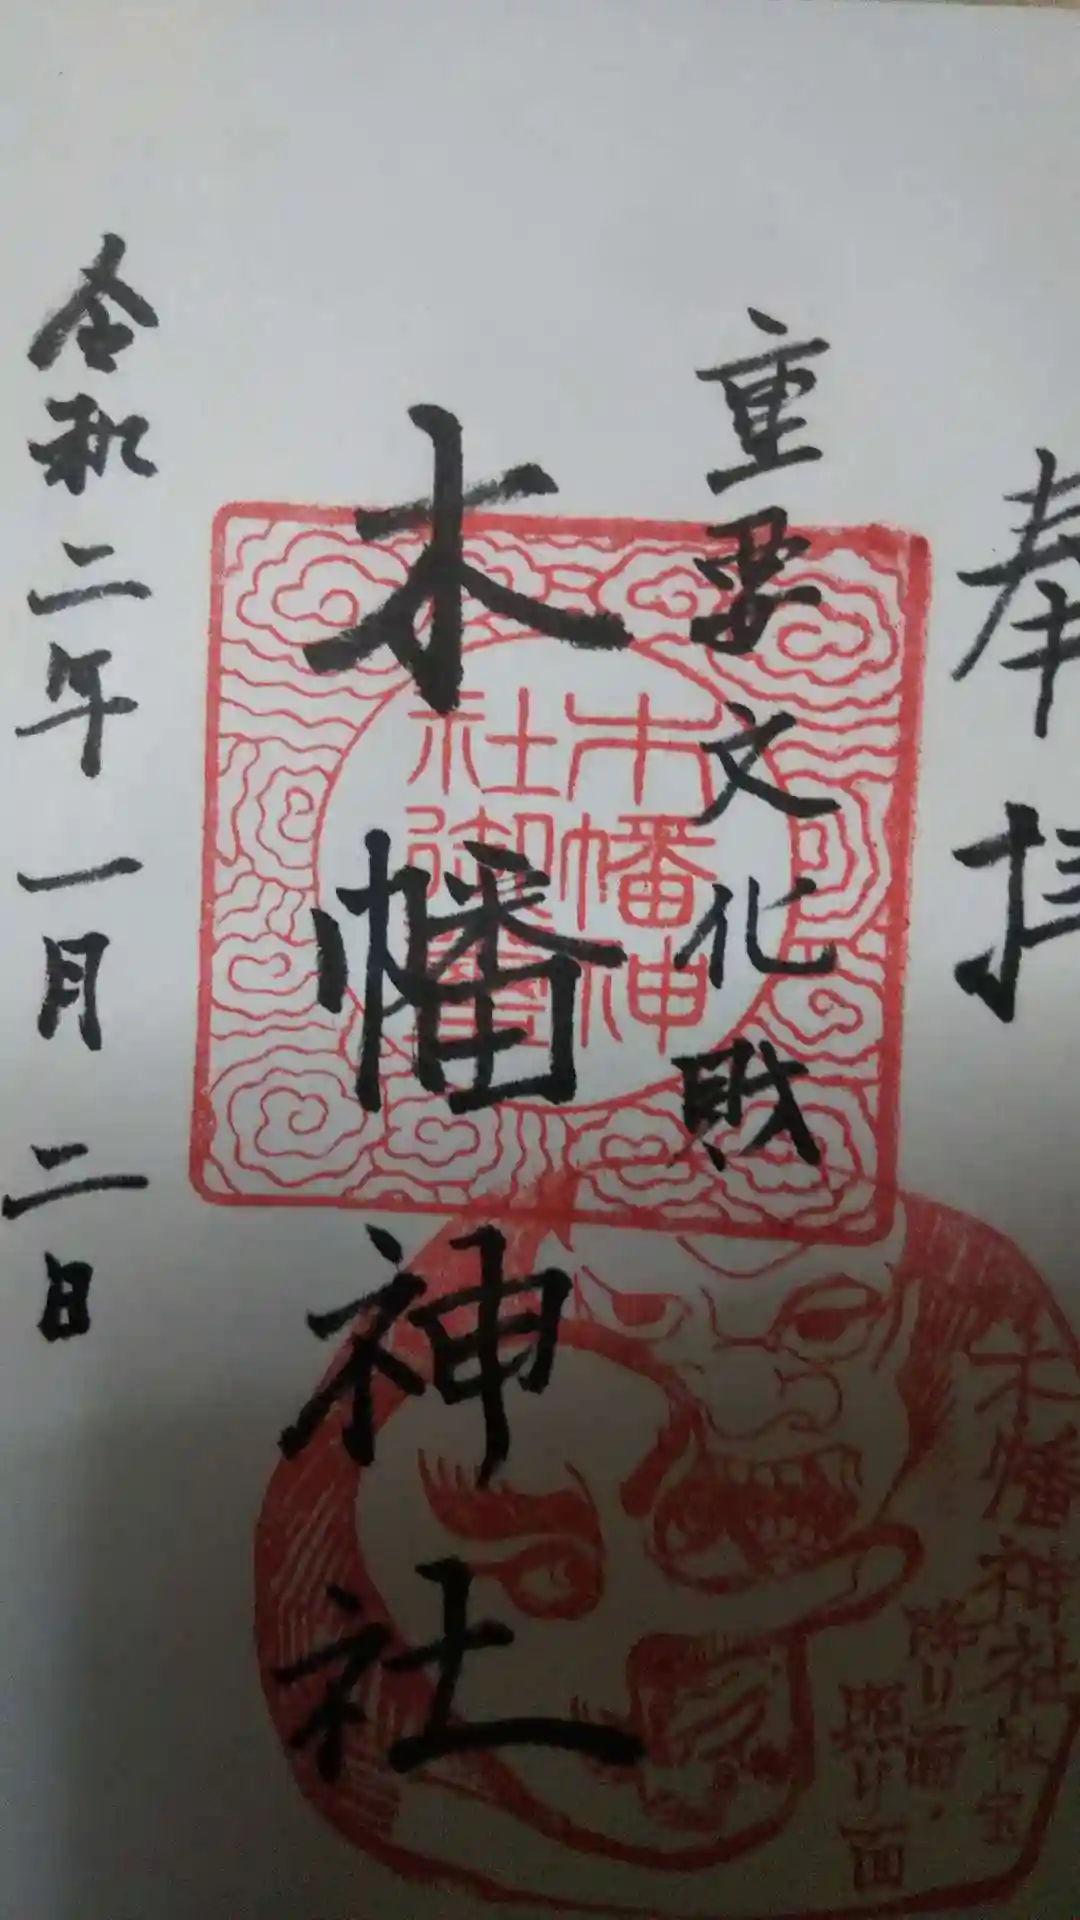 奉拝
重要文化財
木幡神社
令和二年一月二日
木幡神
社御璽
木幡神社社宝
降り面・
照り面